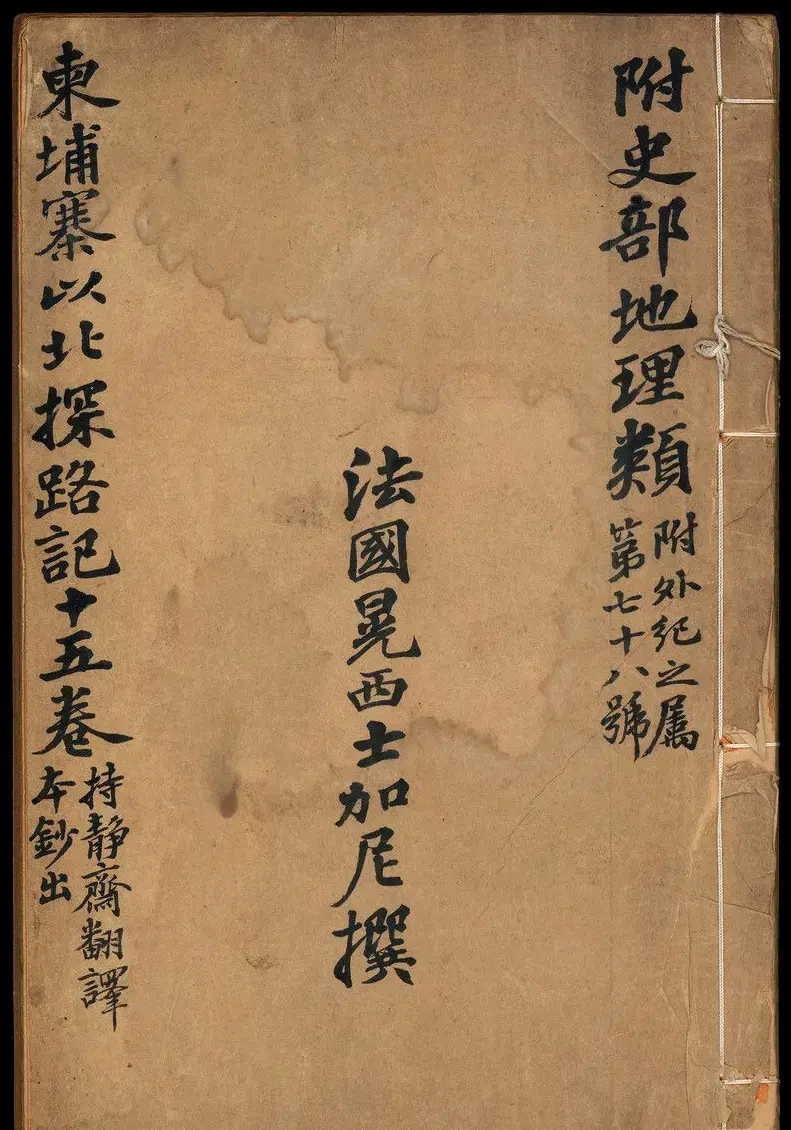 附史部地理類
附外紀之属
第七十八號
法國晃西士加尼撰
柬埔寨以北探路記十五卷
持静齋翻譯
本鈔出